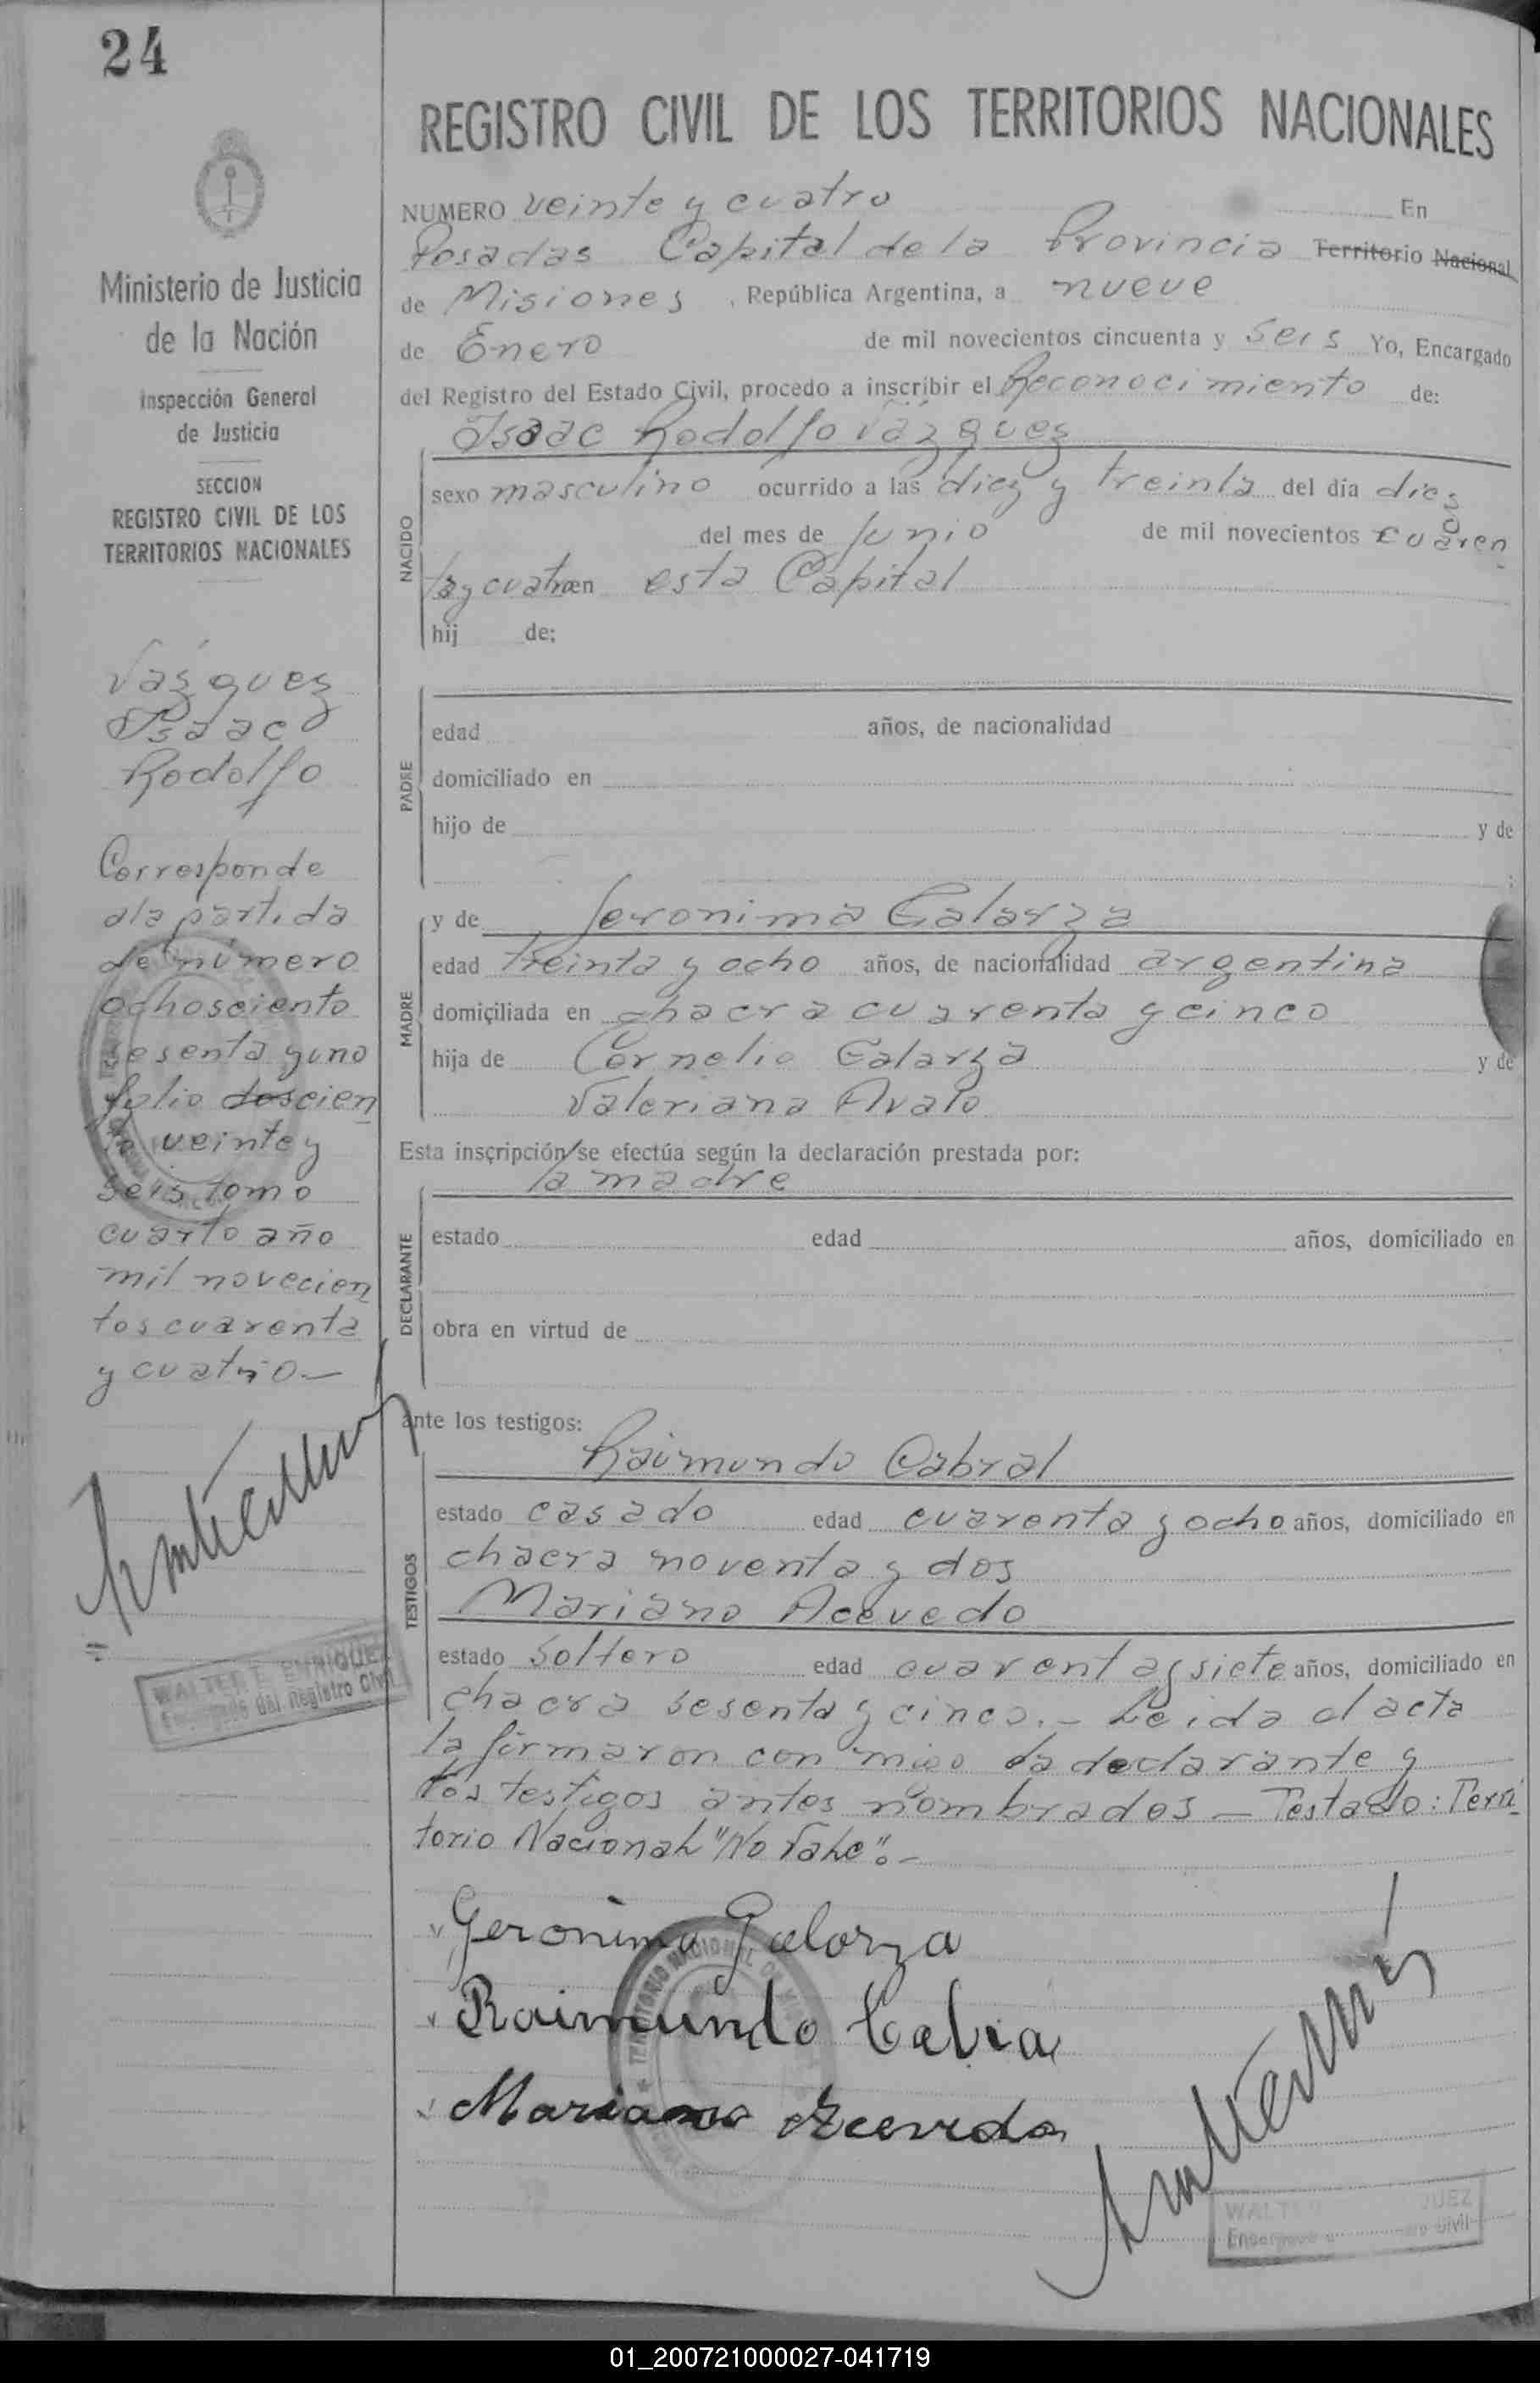 24
Ministerio de Justicia
de la Nación
Inspección General
de Justicia
SECCION
REGISTRO CIVIL DE LOS
TERRITORIOS NACIONALES
Vázquez
Isaac
Rodolfo
Corresponde
a la partida
de número
ochosciento
sesenta y uno
folio doscien
to veinte y
seis tomo
cuarto año
mil novecien
tos cuarenta
y cuatro.—
WALTER E. ENRIQUEZ
Encargado del Registro Civil
REGISTRO CIVIL DE LOS TERRITORIOS NACIONALES
NUMERO veinte y cuatro En
Posadas Capital de la Provincia Territorio Nacional
de Misiones, República Argentina, a nueve
de Enero de mil novecientos cincuenta y seis Yo, Encargado
del Registro del Estado Civil, procedo a inscribir el Reconocimiento de:
Isaac Rodolfo Vázquez
NACIDO
sexo masculino ocurrido a las diez y treinta del día diez
del mes de Junio de mil novecientos cuaren
ta y cuatro en esta Capital
hij de:
PADRE
edad años, de nacionalidad
domiciliado en
hijo de y de
;
MADRE
y de Jeronima Galarza
edad treinta y ocho años, de nacionalidad argentina
domiciliada en chacra cuarenta y cinco
hija de Cornelio Galarza y de
Valeriana Avalo
Esta inscripción se efectúa según la declaración prestada por:
la madre
DECLARANTE
estado edad años, domiciliado en
obra en virtud de
ante los testigos:
TESTIGOS
Raimundo Cabral
estado casado edad cuarenta y ocho años, domiciliado en
chacra noventa y dos
Mariano Acevedo
estado soltero edad cuarenta y siete años, domiciliado en
chacra sesenta y cinco.— Leida el acta
la firmaron con migo la declarante y
los testigos antes nombrados — Testado: Terri
torio Nacional "No Vale".—
Geronima Galarza
Raimundo Cabra
Mariano Acevedo
TERRITORIO NACIONAL DE
WALTER
Encargado Civil
01_200721000027-041719